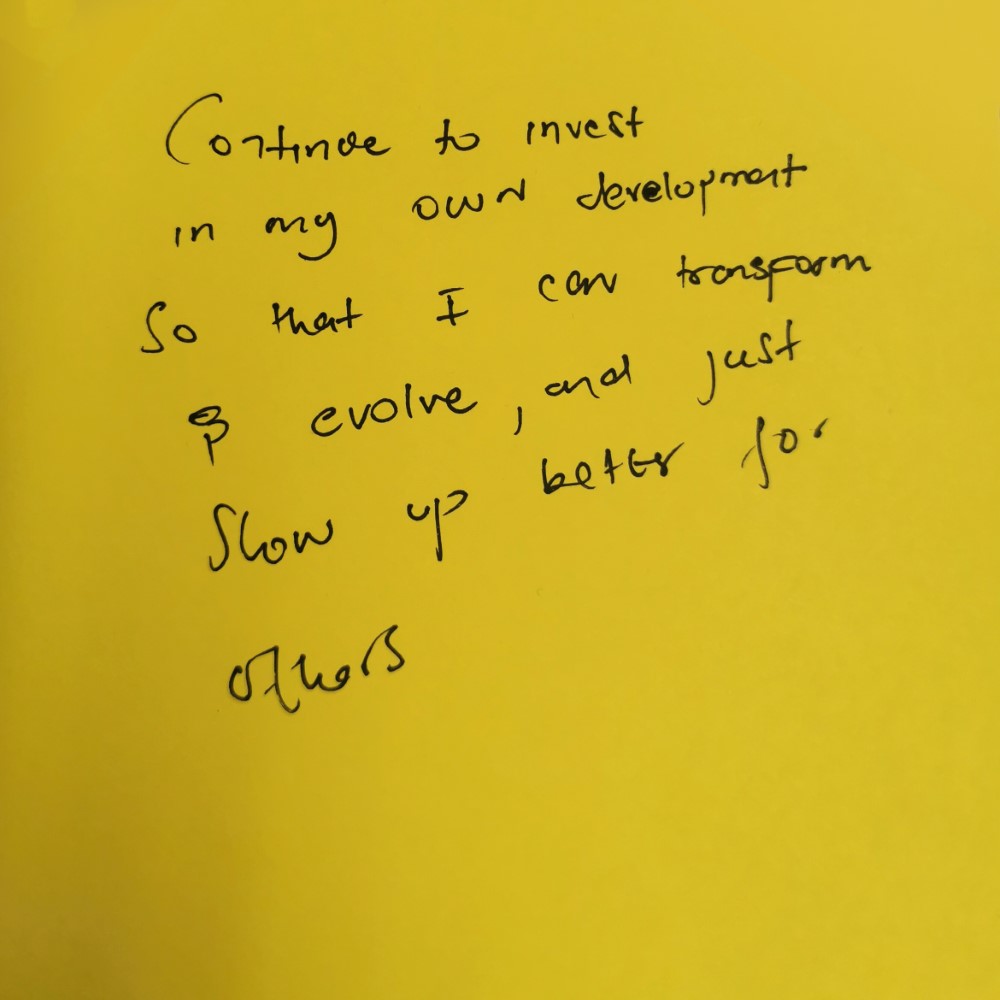 Continue to invest
in my own development
So that I can transform
& evolve, and just
Show up better for
others